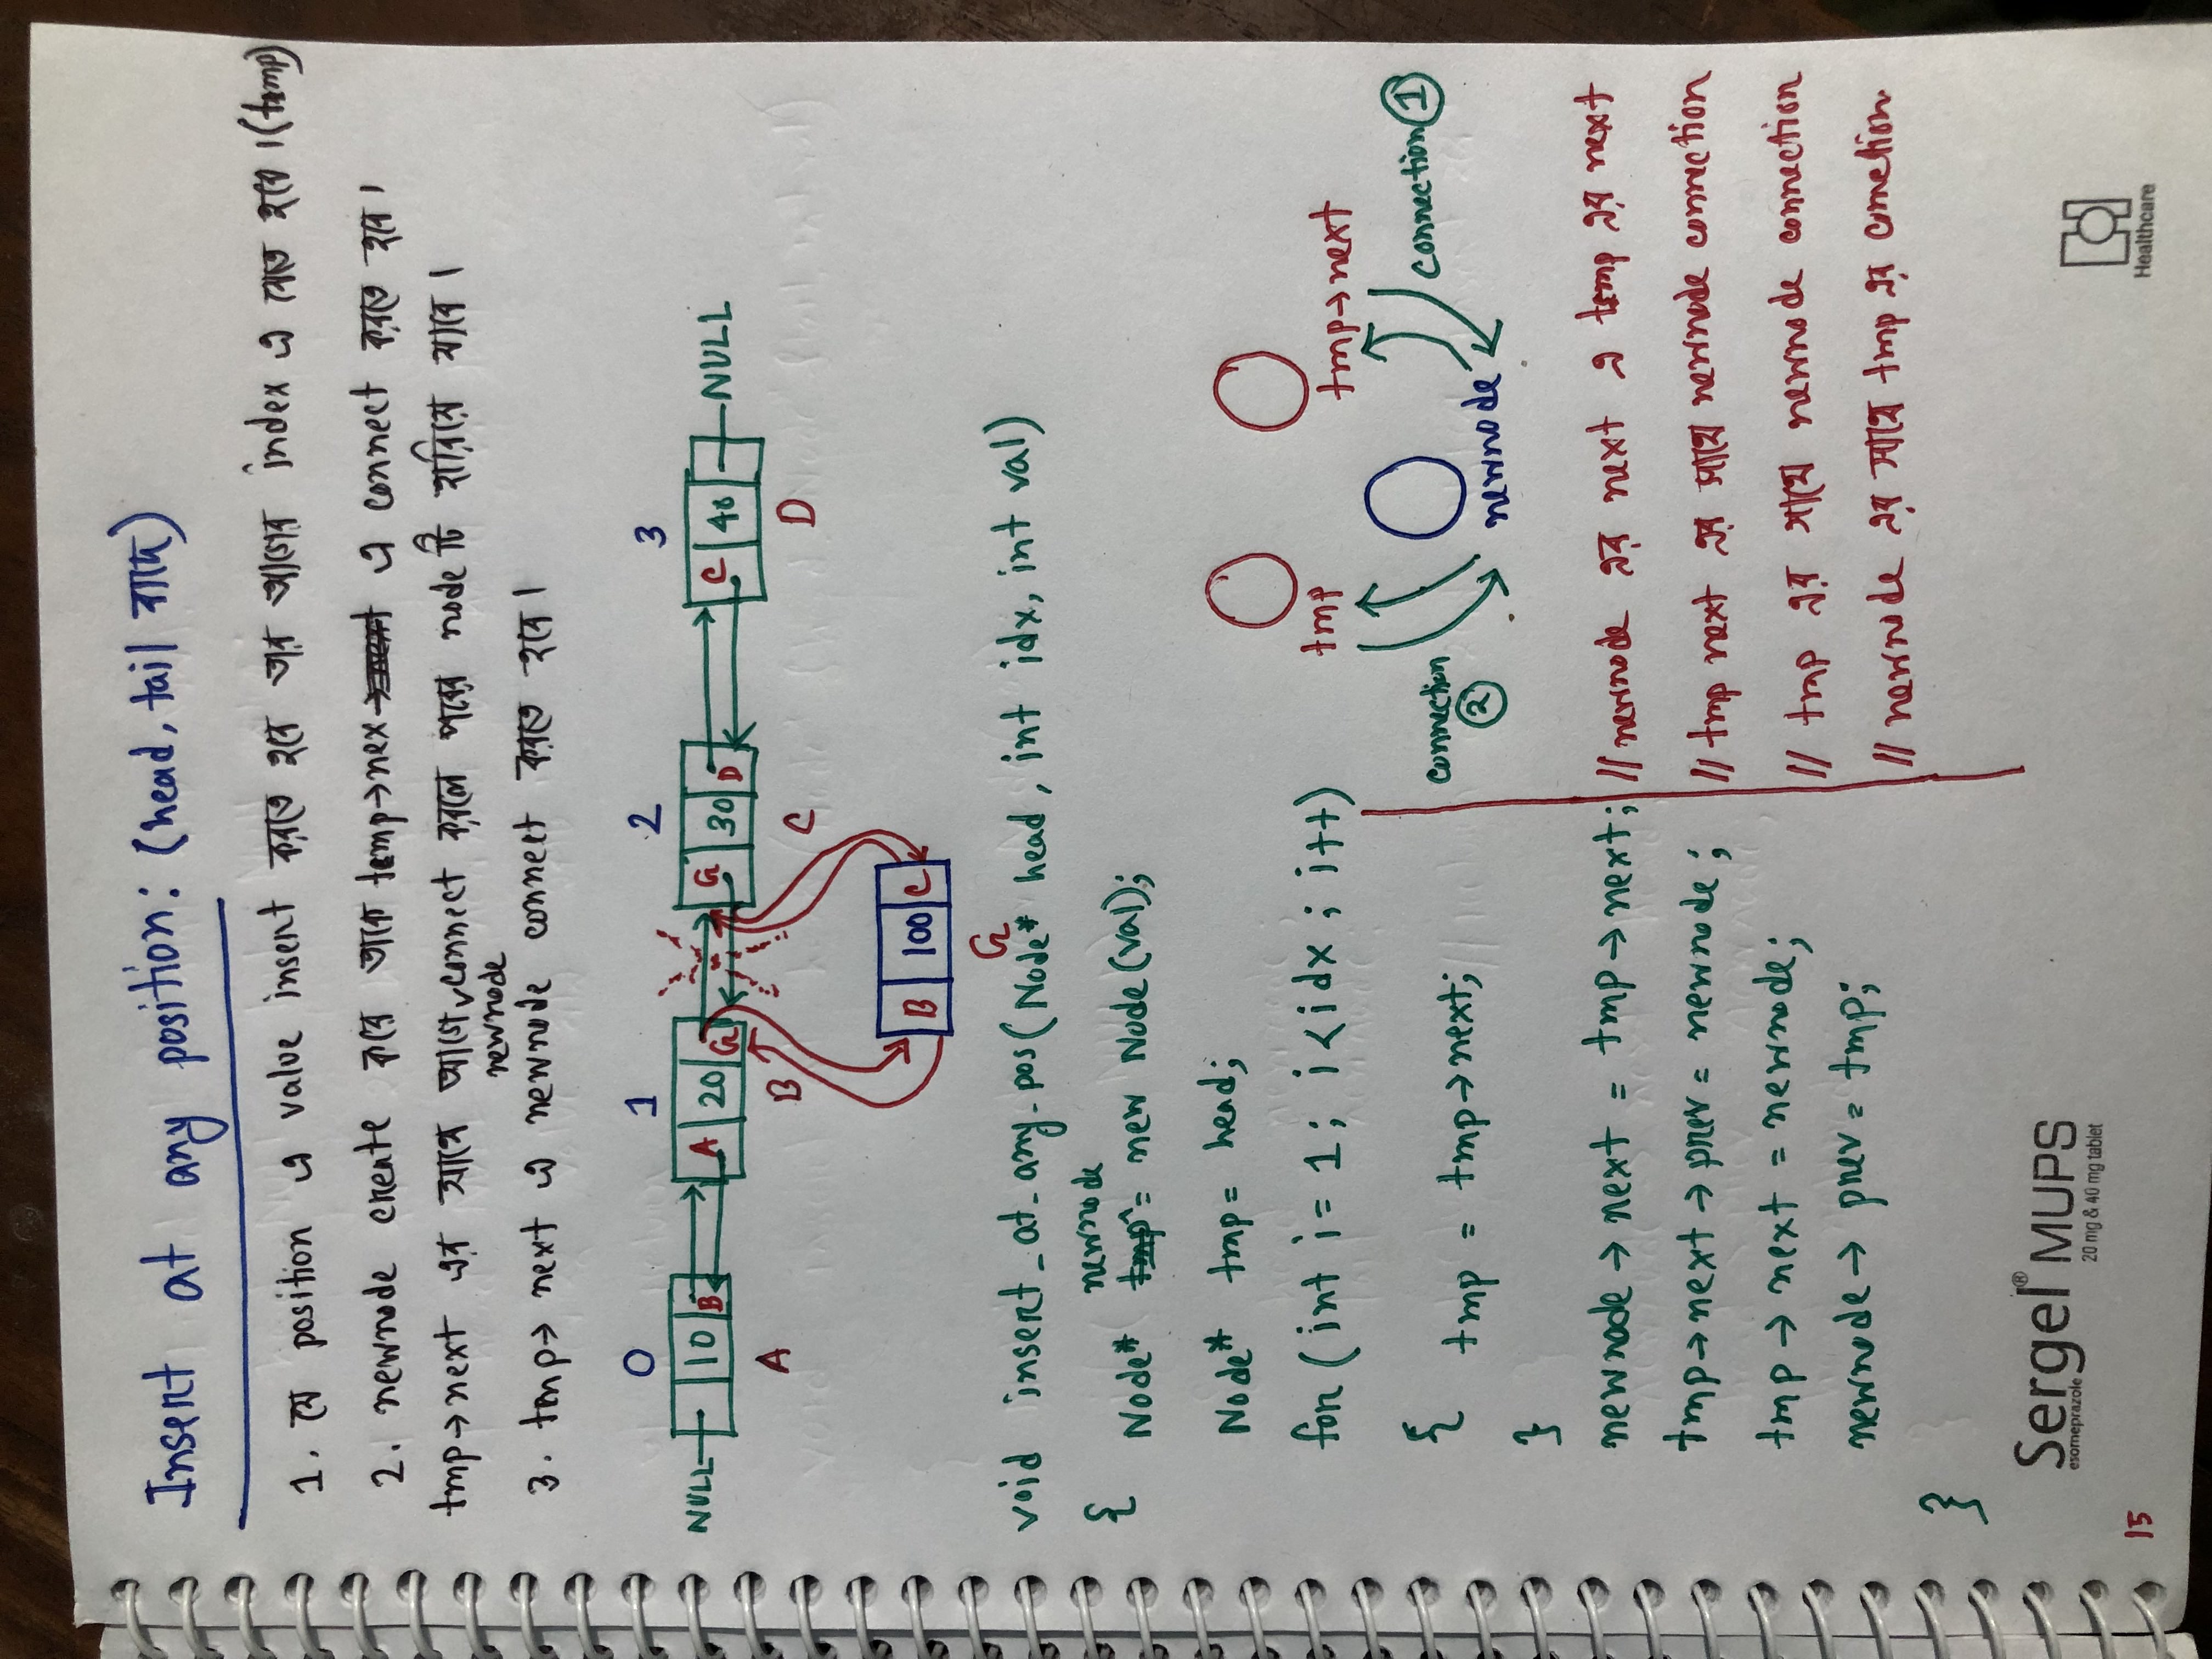 Insert at any position: (head, tail বাদে)
1. যে position এ value insert করতে হবে তার আগের index এ যেতে হবে। (tmp)
2. newnode create করে তাকে temp→nex এ connect করতে হবে।
tmp→next এর সাথে আগে connect করলে পরের node টি হারিয়ে যাবে।
newnode
3. tmp→ next এ newnode connect করতে হবে।
0 1 2 3
NULL 10 B A 20 G G 30 D C 40 NULL
A B C D
B 100 C
G
void insert_at_any_pos(Node* head, int idx, int val)
{
newnode
Node* tmp = new Node(val);
Node* tmp = head;
for (int i = 1; i < idx ; i++)
{ tmp = tmp→next;
}
tmp tmp→next
connection ② newnode connection ①
newnode → next = tmp → next; // newnode এর next এ temp এর next
tmp→next → prev = newnode; // tmp next এর সাথে newnode connection
tmp → next = newnode; // tmp এর সাথে newnode connection
newnode → prev = tmp; // newnode এর সাথে tmp এর connetion
}
Sergel® MUPS
esomeprazole
20 mg & 40 mg tablet
Healthcare
15